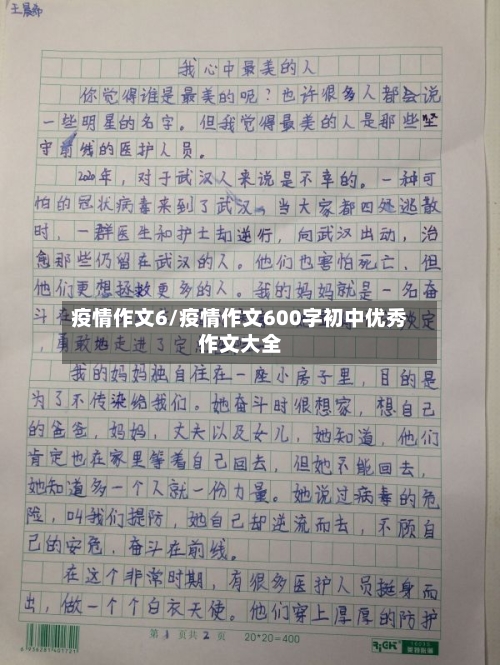 王晨
我心中最美的人
你觉得谁是最美的呢？也许很多人都会说
一些明星的名字。但我觉得最美的人是那些坚
守前线的医护人员。
2020年，对于武汉人来说是不幸的。一种可
怕的冠状病毒来到了武汉。当大家都四处逃散
时，一群医生和护士却逆行，向武汉出动，治
愈那些仍留在武汉的人。他们也害怕死亡，但
他们更想拯救更多的人。我的妈妈就是一名奋
斗在
疫情作文6/疫情作文600字初中优秀
作文大全
定
勇敢地走进了定
我的妈妈独自住在一座小房子里，目的是
为了不传染给我们。她奋斗时很想家，想自己
的爸爸，妈妈，丈夫以及女儿，她知道，他们
肯定也在家里等着自己回去，但她不能回去，
她知道多一个人就一份力量。她说过病毒的危
险，叫我们提防，她自己却逆流而去，不顾自
己的安危，奋斗在前线。
在这个非常时期，有很多医护人员挺身而
出，做一个个白衣天使。他们穿上厚厚的防护
第 1 页共 2 页 20*20=400
6956281401721